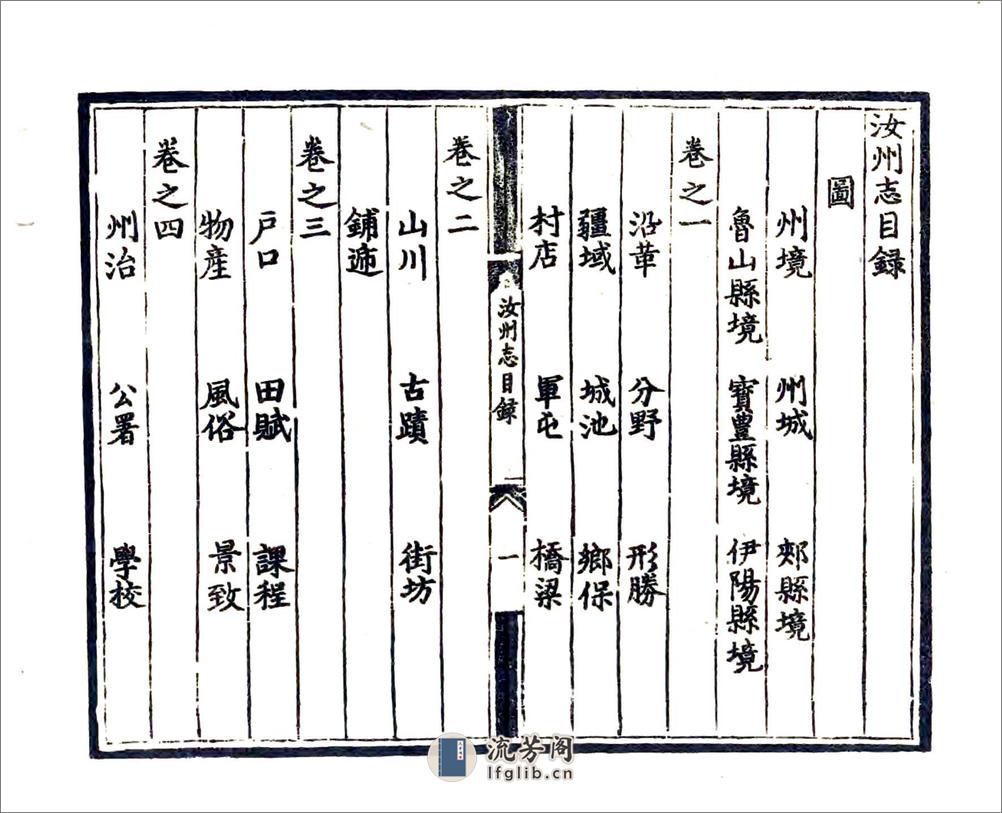 汝州志目録
圖
州境 州城 郟縣境
魯山縣境 寶豐縣境 伊陽縣境
卷之一
沿革 分野 形勝
疆域 城池 鄉保
村店 軍屯 橋梁
汝州志目録 一
卷之二
山川 古蹟 街坊
鋪遞
卷之三
戶口 田賦 課程
物產 風俗 景致
卷之四
州治 公署 學校
流芳阁
lfglib.cn